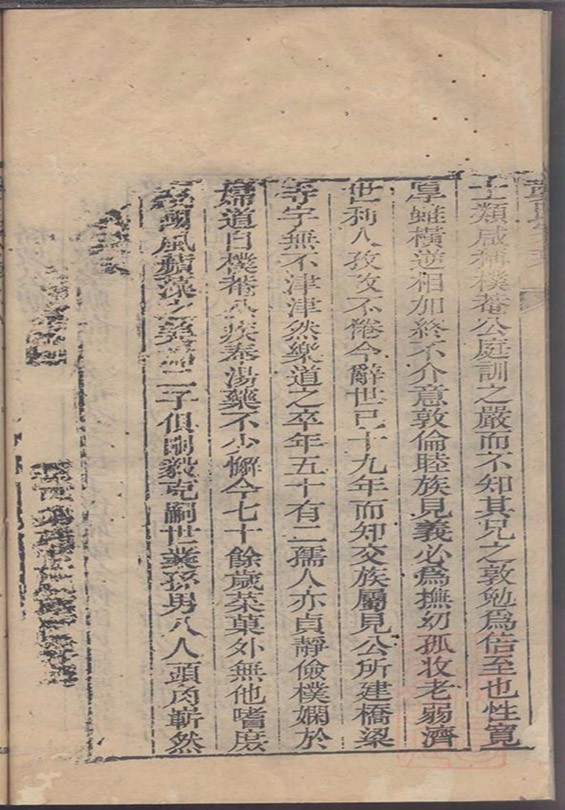 士類咸稱樸菴公庭訓之嚴而不知其兄之敦勉爲倍至也性寬
厚雖橫逆相加終不介意敦倫睦族見義必爲撫幼孤收老弱濟
世利人孜孜不倦今辭世已十九年而知交族屬見公所建橋梁
寺宇無不津津然樂道之卒年五十有二孺人亦貞靜儉樸嫻於
婦道日樸菴公疾奉湯藥不少懈今七十餘歲菜菓外無他嗜庶
國風蘋藻之 二子俱 毅克嗣世業孫男八人頭肉嶄然